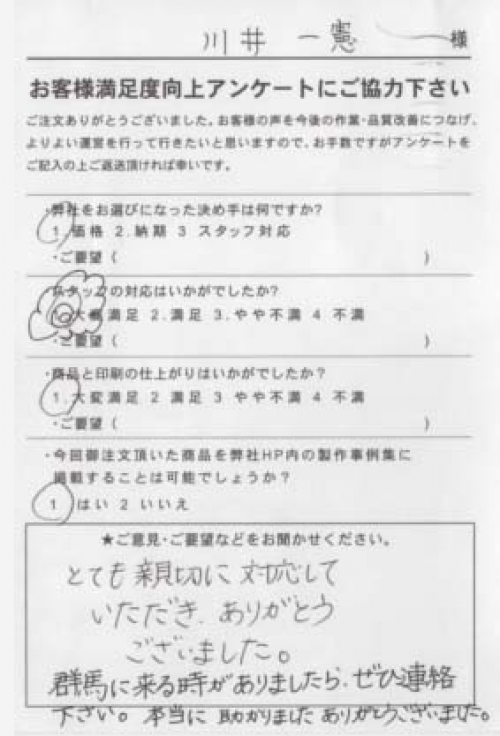 川井 一憲 様
お客様満足度向上アンケートにご協力下さい
ご注文ありがとうございました。お客様の声を今後の作業・品質改善につなげ、
よりよい運営を行って行きたいと思いますので、お手数ですがアンケートを
ご記入の上ご返送頂ければ幸いです。
・弊社をお選びになった決め手は何ですか?
1.価格 2.納期 3 スタッフ対応
・ご要望 ( )
・スタッフの対応はいかがでしたか?
1.大変満足 2.満足 3.やや不満 4 不満
・ご要望 ( )
・商品と印刷の仕上がりはいかがでしたか?
1.大変満足 2 満足 3 やや不満 4 不満
・ご要望 ( )
・今回御注文頂いた商品を弊社HP内の製作事例集に
掲載することは可能でしょうか?
1 はい 2 いいえ
★ご意見・ご要望などをお聞かせください。
とても親切に対応して
いただき、ありがとう
ございました。
群馬に来る時がありましたら、ぜひ連絡
下さい。本当に助かりました ありがとうございました。